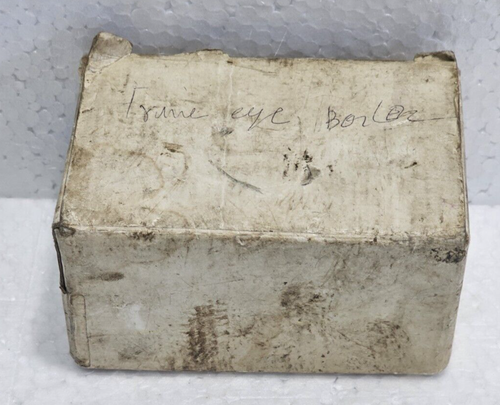 Frame eye Boiler